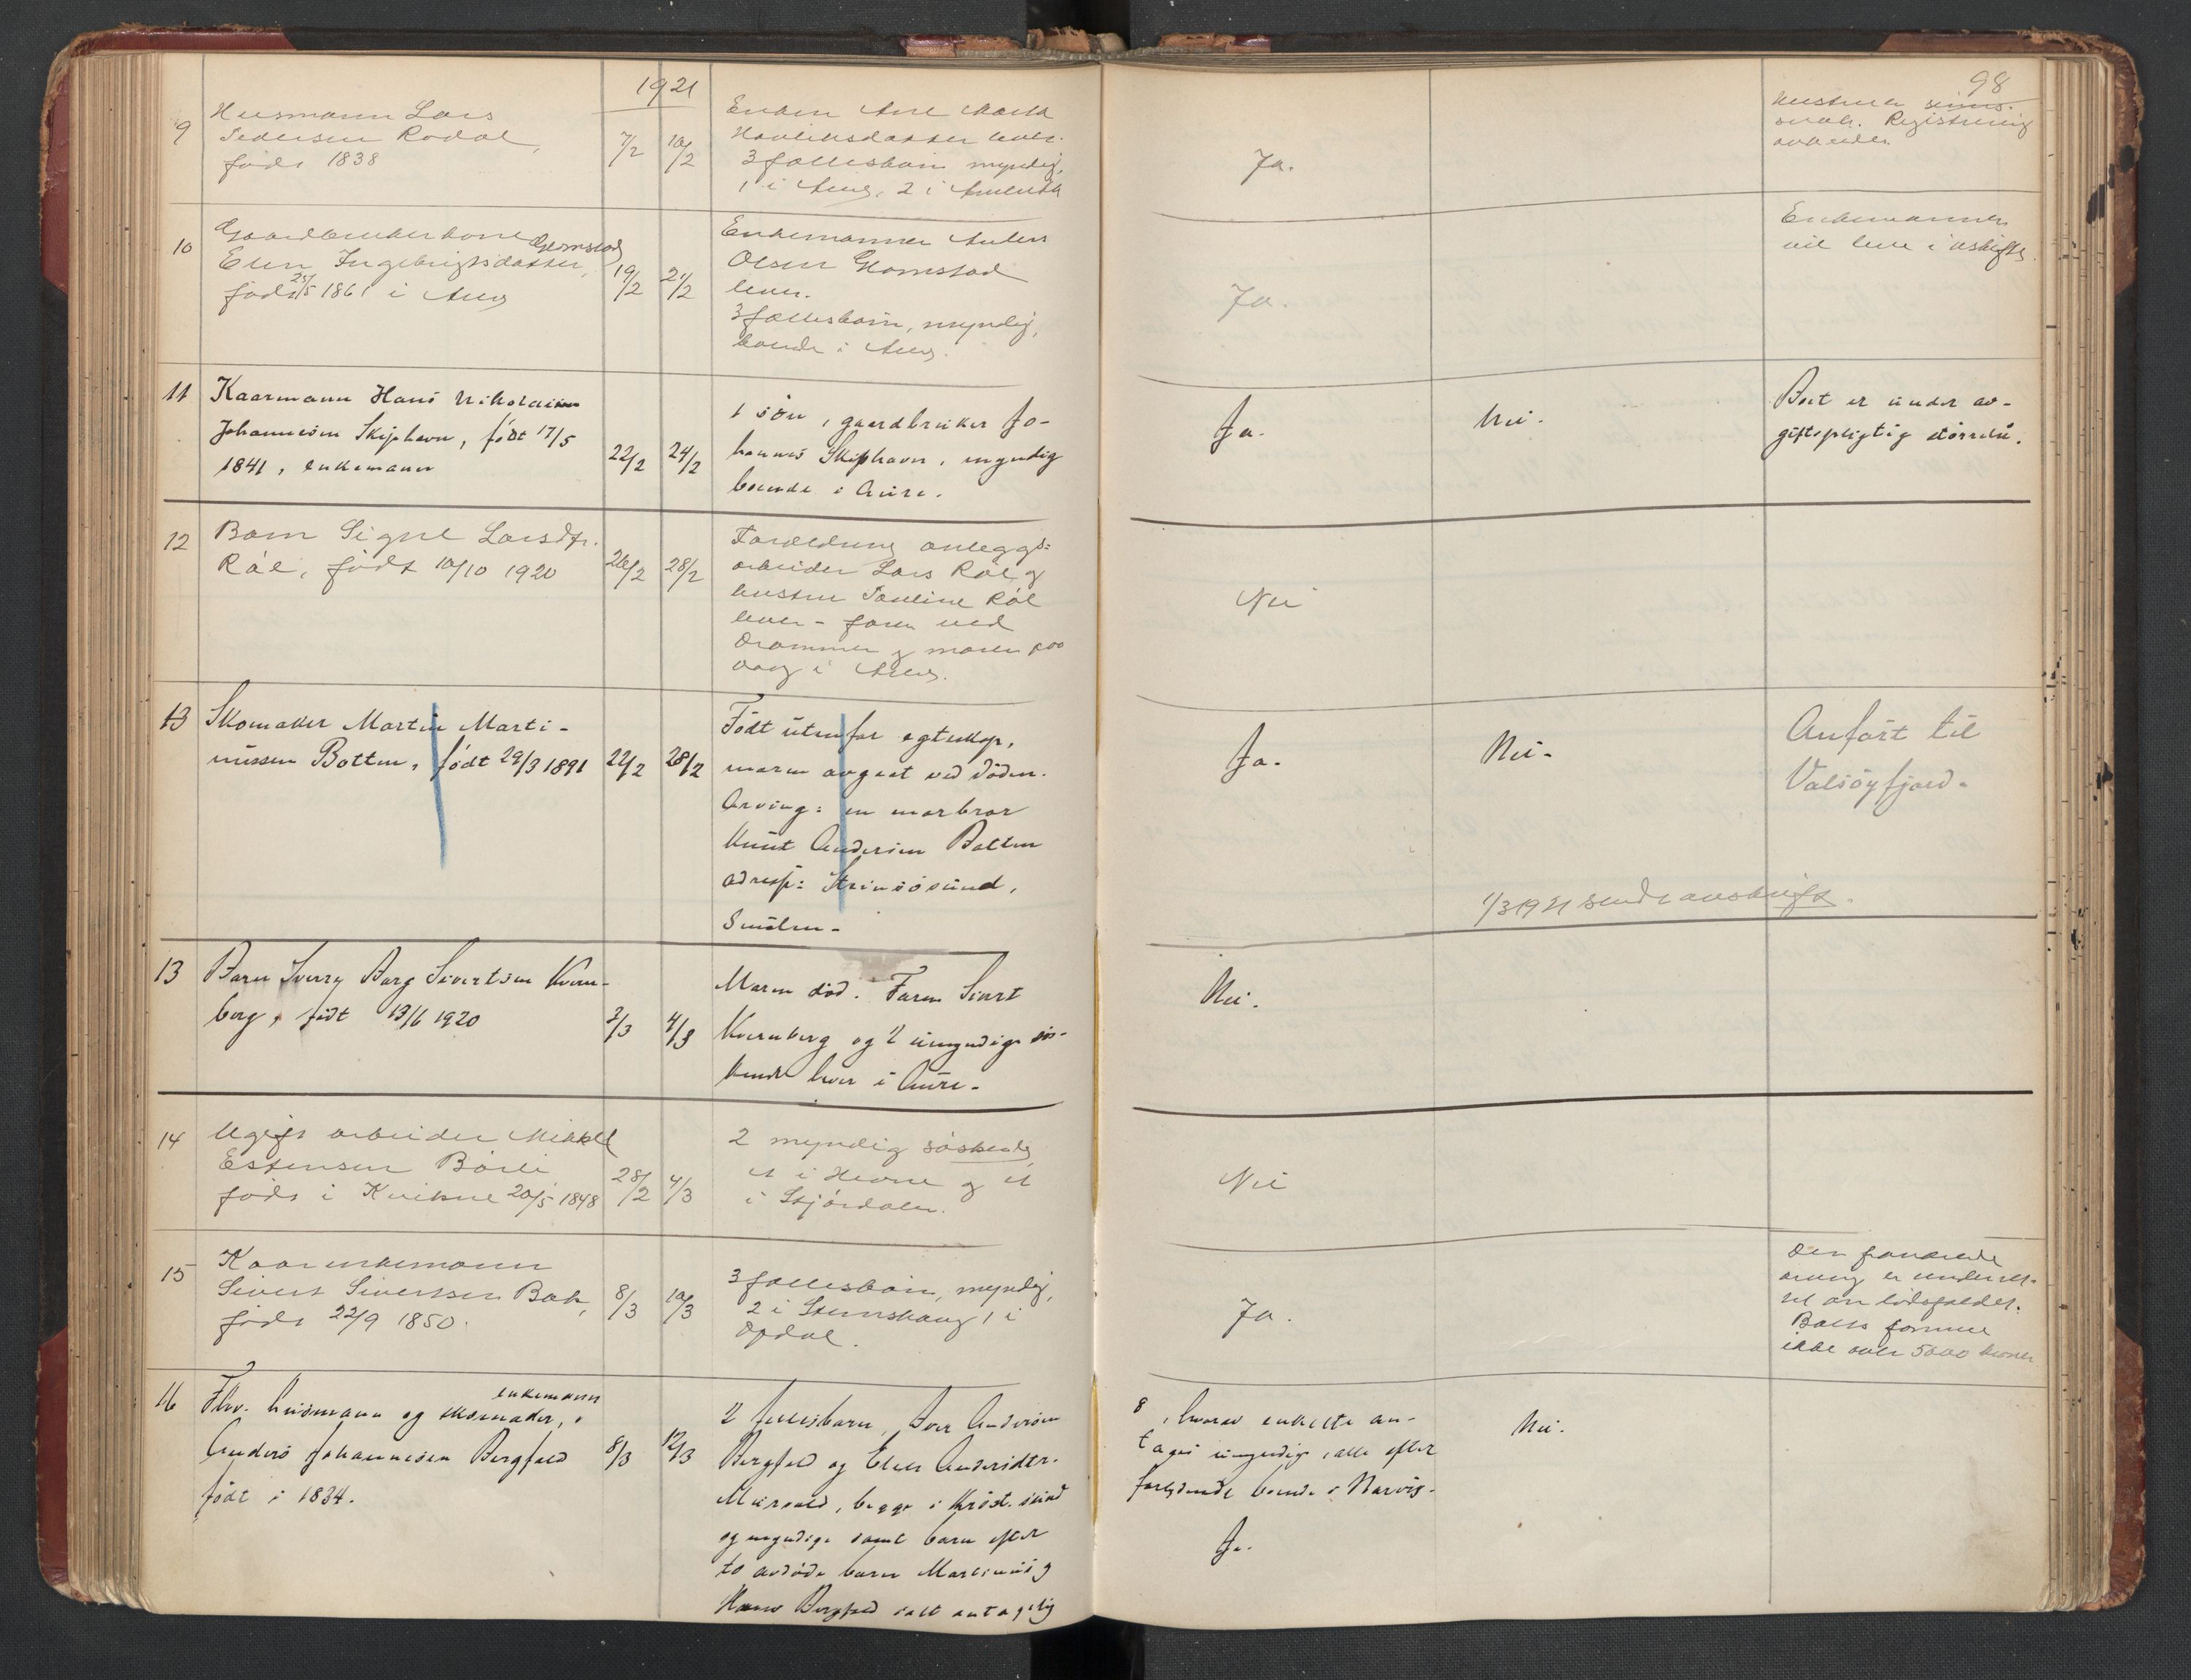 1921
98
9
Husmann Lars
Pedersen Rodal,
født 1838
7/2
10/2
Enken Ane Marta
lever.
3 fællesbarn myndig,
1 i Aure, 2 i Amerika
Ja.
Hustruen sinns-
svak. Registrering
10
Gaardbrukerkone
Glomstad
Elen Ingebrigtsdatter,
født 25/5 1861 i Aure
19/2
21/2
Enkemannen Anders
Olsen Glomstad
lever.
3 fællesbarn, myndig,
boende i Aure.
Ja.
Enkemannen
vil leve i uskifte.
11
Kaarmann Hans Nikolai
Johannesen Skiphavn, født 17/5
1841, enkemann
22/2
24/2
1 søn, gaardbruker Jo-
hannes Skiphavn, myndig
boende i Aure.
Ja.
Nei.
Boet er under av-
giftspligtig størrelse.
12
Barn Signe Larsdtr.
Røl, født 10/10 1920
26/2
28/2
Forældrene anleggs-
arbeider Lars Røl og
hustru Pauline Røl
lever - faren ved
Drammen og moren paa
i Aure.
Nei
13
Skomaker Martin Marti-
nussen Botten, født 29/3 1891
22/2
28/2
Født utenfor egteskap,
moren avgaat ved døden.
Arving: en morbror
Knut Andersen Botten
adresse: Steinsøsund,
Smølen.
Ja.
Nei.
Anført til
Valsøyfjord.
1/3 1921 sendt avskrift.
13
Barn Sverry Borg Sivertsen Kvern-
berg, født 13/6 1920
2/3
4/3
Moren død. Faren Sivert
Kvernberg og 2 umyndige søs-
kende lever i Aure.
Nei.
14
Ugift arbeider Mikkel
Estensen Børli
født i Kvikne 20/5 1848
28/2
4/3
2 myndig søskende,
et i Hevne og et
i Stjørdalen.
Nei
15
Kaarenkemann
Sivert Sivertsen Bak,
født 22/9 1850.
8/3
10/3
3 fællesbarn, myndig,
2 i Stemshaug, 1 i
Opdal.
Ja.
Den fraværende
arving er underret-
tet om dødsfaldet.
Boets formue
ikke over 5000 kroner
16
Fhv. husmann og skomaker,
enkemann
Anders Johannesen Bergfald
født i 1834.
8/3
12/3
2 fellesbarn, Iver Andersen
Bergfald og Elen Andersdtr.
Mürvold, begge i Krist.sund
og myndige samt barn efter
to avdøde barn Martinus og
Hans Bergfald ialt antagelig
8, hvorav enkelte an-
tages umyndige, alle efter
forlydende boende i Narvig.
Ja.
Nei.